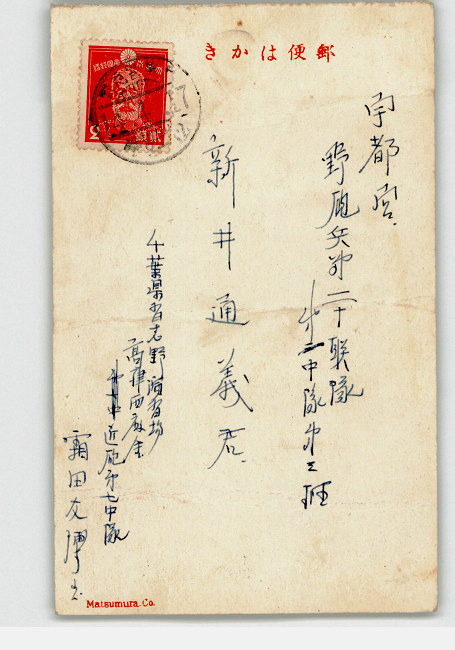 郵便はかき
宇都宮
野砲兵第二十聯隊
第二中隊第三班
新井通義君
千葉県習志野演習場
高津四廠舎
近砲第七中隊
霜田友
Matsumura. Co.